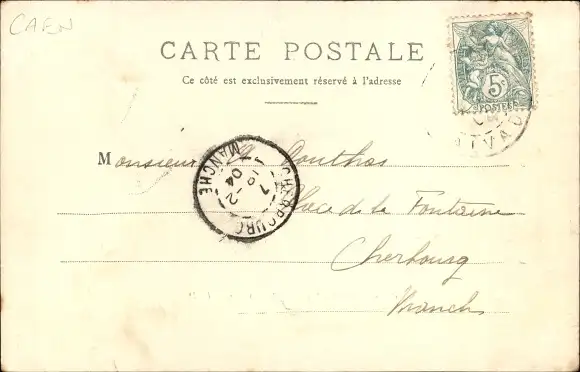 CAEN
CARTE POSTALE
Ce côté est exclusivement réservé à l'adresse
5c
POSTES
Monsieur
CHERBOURG
MANCHE
7
18-2
04
Place de la Fontaine
Cherbourg
Manche